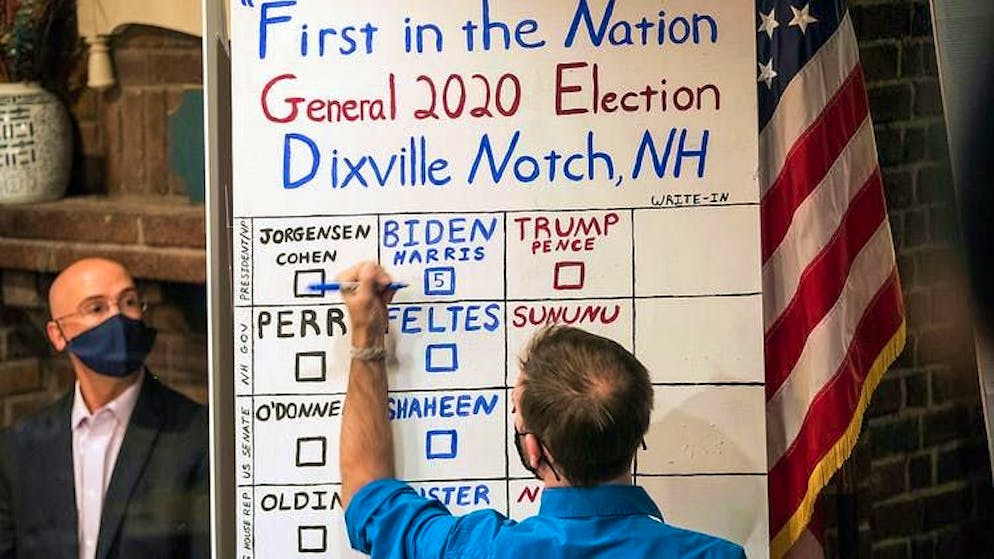 "First in the Nation
General 2020 Election
Dixville Notch, NH
WRITE-IN
PRESIDENT/VP
JORGENSEN
COHEN
BIDEN
HARRIS
5
TRUMP
PENCE
NH GOV
PERR
FELTES
SUNUNU
US SENATE
O'DONNE
SHAHEEN
HOUSE REP
OLDIN
USTER
N